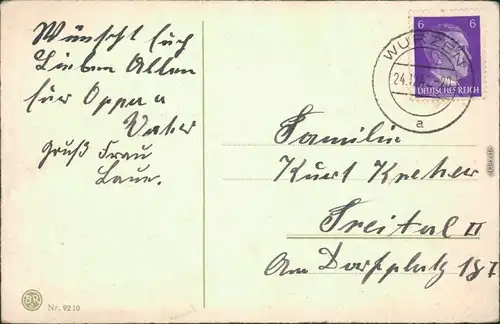 Wünscht Euch
Lieben Allen
für Oppa u
Vater
Gruß Frau
Laue.
Nr. 9210
6 6
DEUTSCHES REICH
WURZEN
24.12.
a
Familie
Kurt Kreher
Freital II
Am Dorfplatz